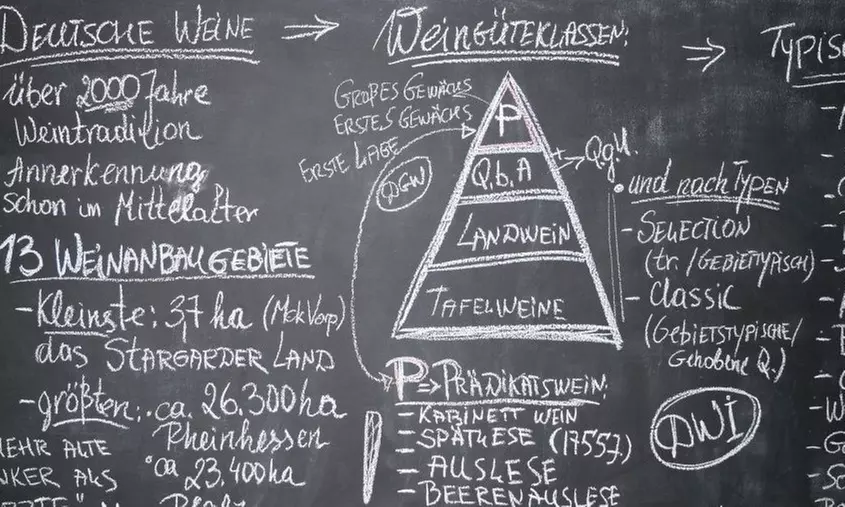 DEUTSCHE WEINE
über 2000 Jahre
Weintradition
Annerkennung
schon im Mittelalter
13 WEINANBAUGEBIETE
- Kleinste: 3,7 ha (MckVorp)
das STARGARDER LAND
- größten: ca. 26.300 ha
Rheinhessen
ca 23.400 ha
MEHR ALTE
ALS
→ WEINGÜTEKLASSEN:
GROßES GEWÄCHS
ERSTES GEWÄCHS
ERSTE LAGE
P
Q.b.A
LANDWEIN
TAFELWEINE
P => PRÄDIKATSWEIN:
- KABINETT WEIN
- SPÄTLESE
- AUSLESE
- BEERENAUSLESE
→
• und nach TYPEN
- SELECTION
(tr./GEBIETTYPISCH)
- Classic
(GEBIETSTYPISCHE/
Gehobene Q.)
DWI